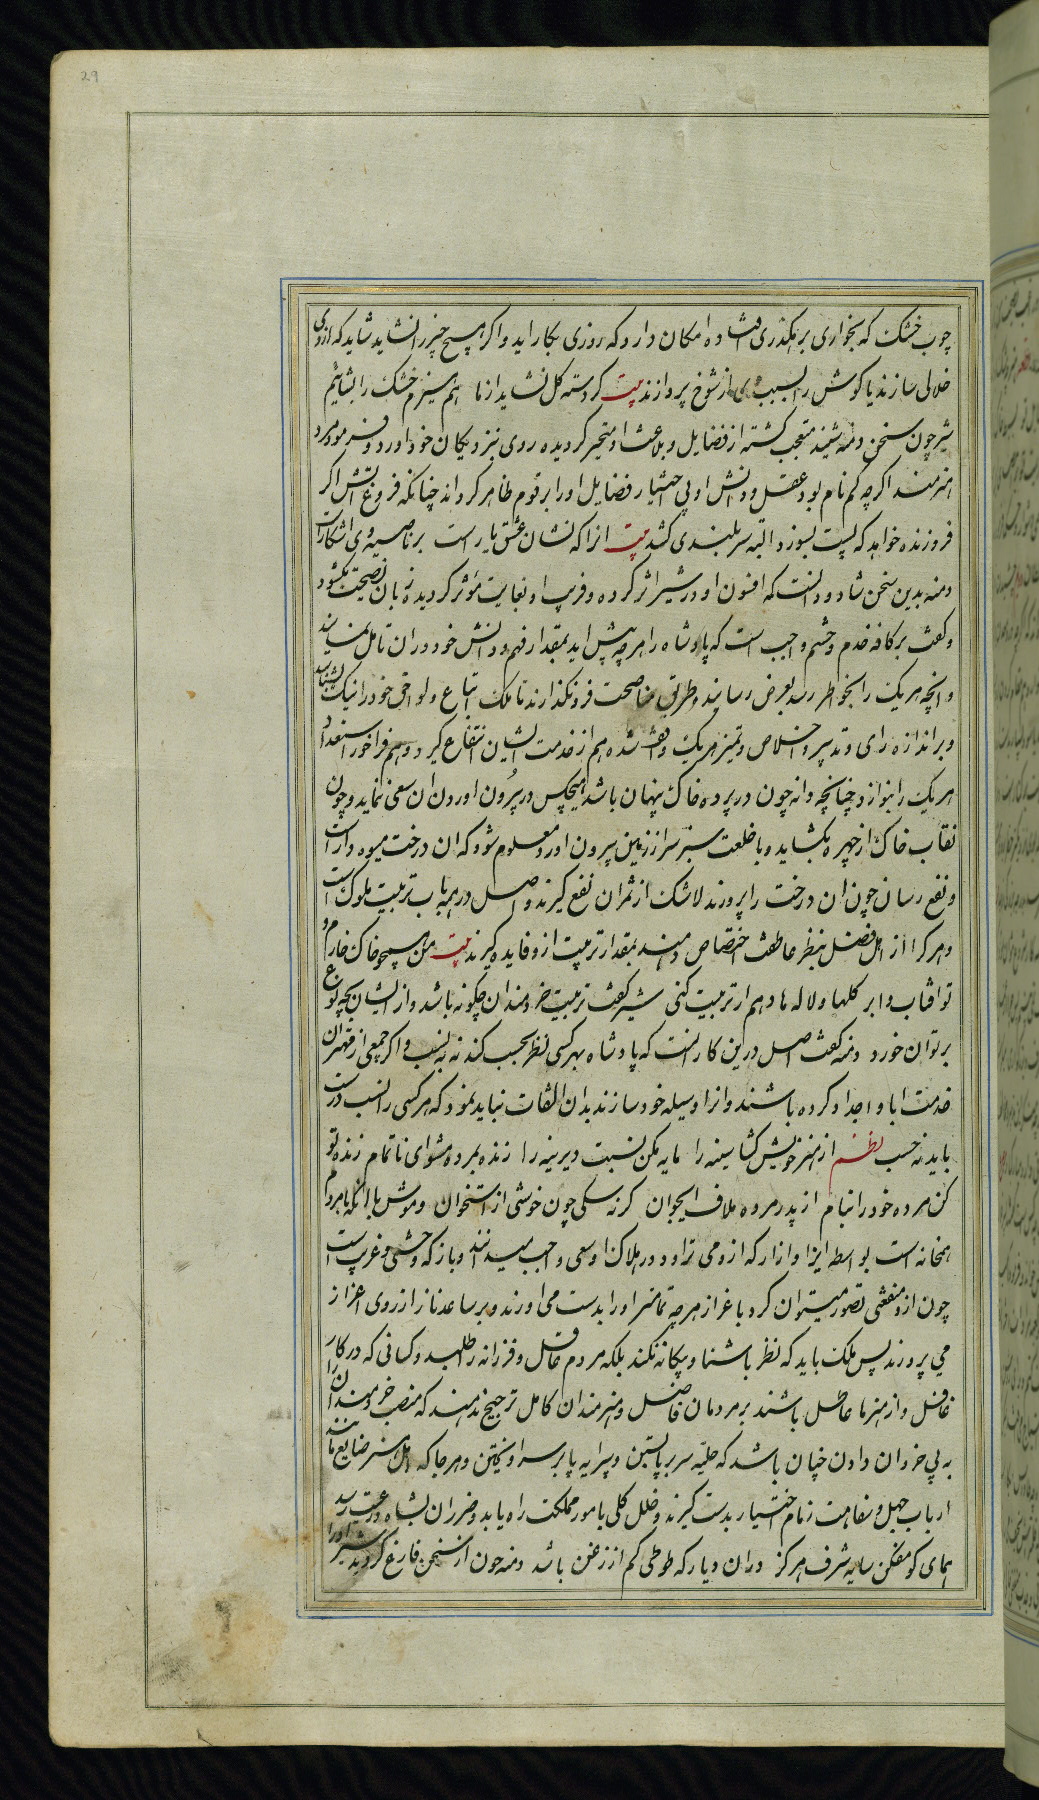 29
چوب خشک که بخواری بر رهگذری افتاده امکان دارد که روزی بکار اید و اگر هیچ چیز را نشاید شاید که ازوی
خلالی سازند یا گوش را بسبب وی از شوخ پردازند بیت گر دسته گل نشاید از ما هم هیزم خشک را بشاییم
شیر چون سخن دمنه شنید متعجب گشته از فضایل و بلاغت او متحیر گردیده روی بنزدیکان خود اورد و فرمود مرد
هنرمند اگرچه گم نام بود عقل و دانش او بی اختیار فضایل او را بر قوم ظاهر گرداند چنانکه فروغ اتش اگر
فروزنده خواهد که پست بسوزد البته سر بلندی کشد بیت انرا که نشان عشق یار است بر ناصیه وی اشکار است
دمنه بدین سخن شاد و دانست که افسون او در شیر اثر کرده و فریب او بغایت مؤثر گردیده زبان نصیحت بگشود
و گفت بر کافه خدم و حشم واجب است که پادشاه را هر چه پیش اید بمقدار فهم و دانش خود در ان تامل نمایند
و انچه هر یک را بخواطر رسد بعرض رسانند و طریق مناصحت فرو نگذارند تا ملک اتباع و لواحق خود را نیک بشناسد
و بر اندازه رای و تدبیر و اخلاص و تمیز هر یک واقف شده هم از خدمت ایشان انتفاع گیرد و هم فراخور استعداد
هر یک را بنوازد چنانچه دانه چون در پرده خاک پنهان باشد هیچکس در بیرون اوردن ان سعی ننماید و چون
نقاب خاک از چهره بگشاید و با خلعت سبز سر از زمین بیرون اورد معلوم شود که ان درخت میوه دار است
و نفع رسان چون ان درخت را پرورند لاشک از ثمر ان نفع گیرند و اصل در همه باب تربیت ملوک است
و هر کرا از اهل فضل بنظر عاطفت اختصاص دهند بمقدار تربیت ازو فایده گیرند بیت من همچو خاک و خارم و
تو افتاب و ابر گلها و لاله ها دهم ار تربیت کنی شیر گفت تربیت خردمندان چگونه باشد و از ایشان بچه نوع
بر توان خورد دمنه گفت اصل درین کار انست که پادشاه بهر کسی نظر بحسب کند نه به نسب و اگر جمعی از قهتران
خدمت ابا و اجداد کرده باشند و انرا وسیله خود سازند بدان التفات نباید نمود که هر کسی را نسب درست
باید نه حسب نظم از هنر خویش گشا سینه را مایه مکن نسبت دیرینه را زنده بمرده مشو ای ناتمام زنده تو
کن مرده خود را بنام از پدر مرده ملاف ایجوان گر نه سگی چون خوشی از استخوان و موش با انکه با مردم
همخانه است بواسطه ایذا و ازار که ازو می تراود در هلاک او سعی واجب میدانند و باز که وحشی و غریب است
چون ازو منفعتی تصور میتوان کرد باعزاز هر چه تمامتر او را بدست می اورند و بر ساعد ناز از روی اعزاز
می پرورند پس ملک باید که نظر باشنا و بیگانه نکند بلکه مردم عاقل و فرزانه را طلبد و کسانی که در کار
غافل و از هنرها عاطل باشند بر مردمان فاضل و هنرمندان کامل ترجیح ندهند که منصب خردمندان را
به بی خردان دادن چنان باشد که حلیه سر بر پا بستن و پیرایه پا بر سر اویختن و هر جا که اهل هنر ضایع مانند
ارباب جهل و سفاهت زمام اختیار بدست گیرند و خلل کلی بامور مملکت راه یابد و ضرر ان بشاه و رعیت رسد
همای گو مفکن سایه شرف هرگز دران دیار که طوطی کم از زغن باشد دمنه چون از سخن فارغ گردید شیر او را